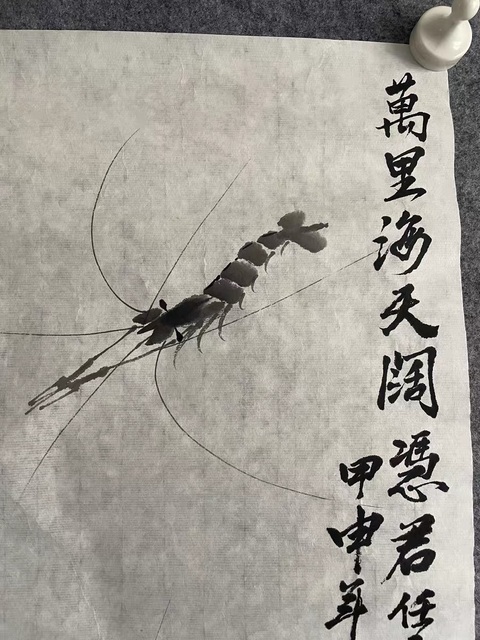 萬里海天闊憑君任
甲申年